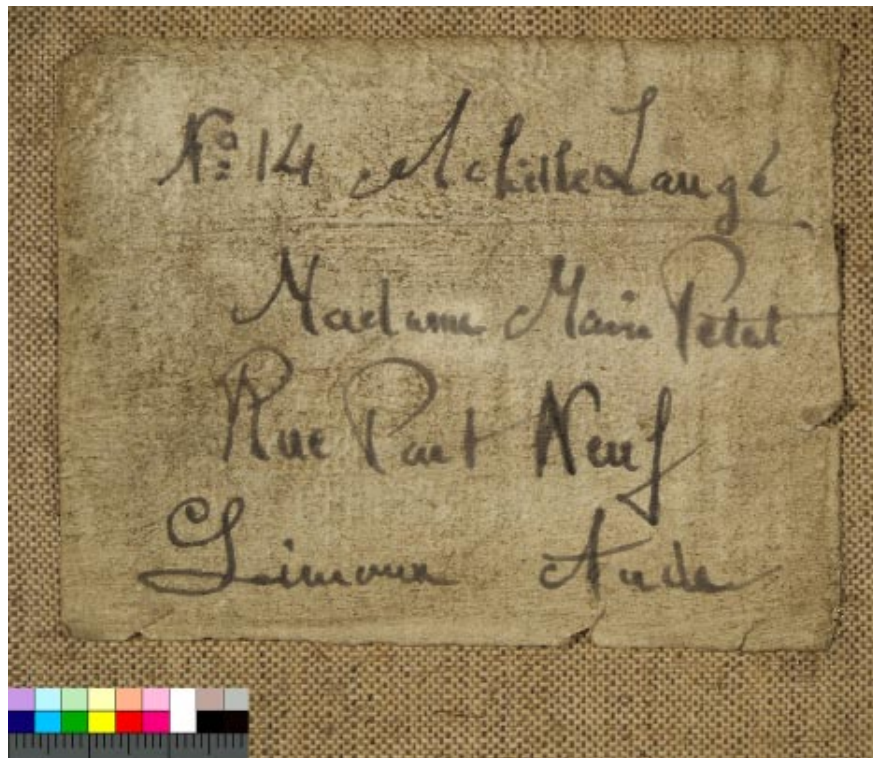 Nº 14 Achille Laugé
Madame Marie Petit
Rue Pont Neuf
Limoux Aude